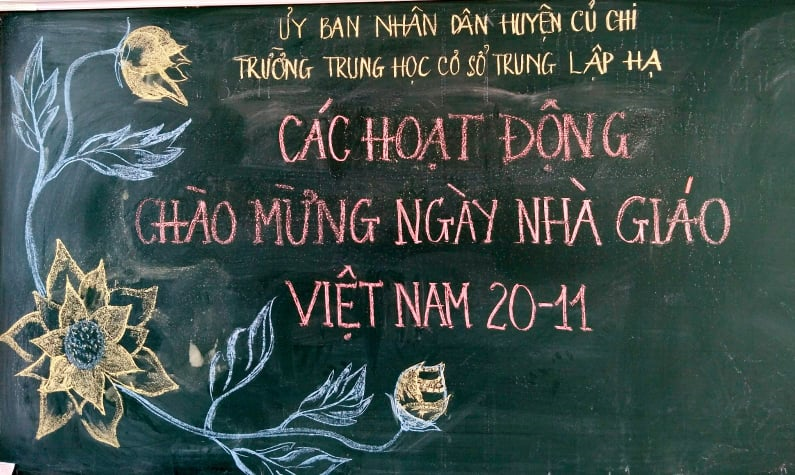 ỦY BAN NHÂN DÂN HUYỆN CỦ CHI
TRƯỜNG TRUNG HỌC CƠ SỞ TRUNG LẬP HẠ
CÁC HOẠT ĐỘNG
CHÀO MỪNG NGÀY NHÀ GIÁO
VIỆT NAM 20-11